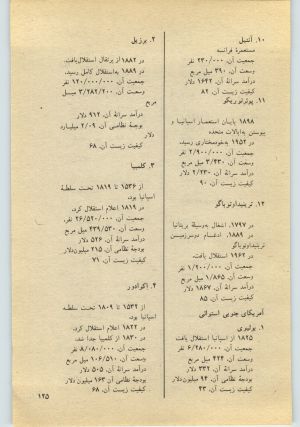 ۱۰. آنتیل
مستعمرهٔ فرانسه
جمعیت آن. ۲۳۰/۰۰۰ نفر
وسعت آن. ۳۹۰ میل مربع
درآمد سرانهٔ آن. ۱۶۴۲ دلار
کیفیت زیست آن. ۸۲
۱۱. پوئرتوریکو
۱۸۹۸ پایان استعمار اسپانیا و
پیوستن به ایالات متحده
در ۱۹۵۲ به‌خودمختاری رسید.
جمعیت آن. ۲/۹۰۰/۰۰۰ نفر
وسعت آن. ۳/۴۳۰ میل مربع
درآمد سرانهٔ آن. ۲/۲۳۰ دلار
کیفیت زیست آن. ۹۰
۱۲. ترینیداد و توباگو
در ۱۷۹۷. اشغال به‌وسیلهٔ بریتانیا
در ۱۸۸۹. ادغام دو سرزمین
ترینیداد و توباگو
در ۱۹۶۲ استقلال یافت.
جمعیت آن. ۱/۲۰۰/۰۰۰ نفر
وسعت آن. ۱/۸۶۵ میل مربع
درآمد سرانهٔ آن. ۱۸۶۷ دلار
کیفیت زیست آن. ۸۵
آمریکای جنوبی استوائی
۱. بولیوی
۱۸۲۵ از اسپانیا استقلال یافت
جمعیت آن. ۶/۲۸۰/۰۰۰ نفر
وسعت آن. ۴۲۴ میل مربع
درآمد سرانهٔ آن. ۳۳۲ دلار
بودجهٔ نظامی آن. ۹۴ میلیون دلار
کیفیت زیست آن. ۴۳
۲. برزیل
در ۱۸۸۲ از پرتغال استقلال یافت.
در ۱۸۸۹ به‌استقلال کامل رسید.
جمعیت آن. ۱۲۰/۰۰۰/۰۰۰ نفر
وسعت آن. ۳/۲۸۲/۲۰۰ میل
مربع
درآمد سرانهٔ آن. ۹۱۲ دلار
بودجهٔ نظامی آن. ۲/۰۹ میلیارد
دلار
کیفیت زیست آن. ۶۸
۳. کلمبیا
از ۱۵۳۶ تا ۱۸۱۹ تحت سلطهٔ
اسپانیا بود.
در ۱۸۱۹ اعلام استقلال کرد.
جمعیت آن. ۲۶/۵۲۰/۰۰۰ نفر
وسعت آن. ۴۳۹/۵۳۰ میل مربع
درآمد سرانهٔ آن. ۵۲۶ دلار
بودجهٔ نظامی آن. ۲۱۵ میلیون دلار
کیفیت زیست آن. ۷۱
۴. اکوادور
از ۱۵۳۲ تا ۱۸۰۹ تحت سلطه
اسپانیا بود.
در ۱۸۲۲ اعلام استقلال کرد.
در ۱۸۳۰ از کلمبیا جدا شد.
جمعیت آن. ۸/۰۸۰/۰۰۰ نفر
وسعت آن. ۱۰۶/۵۱۰ میل مربع
درآمد سرانهٔ آن. ۵۰۵ دلار
بودجهٔ نظامی آن. ۱۶۳ میلیون دلار
کیفیت زیست آن. ۶۸
۱۲۵